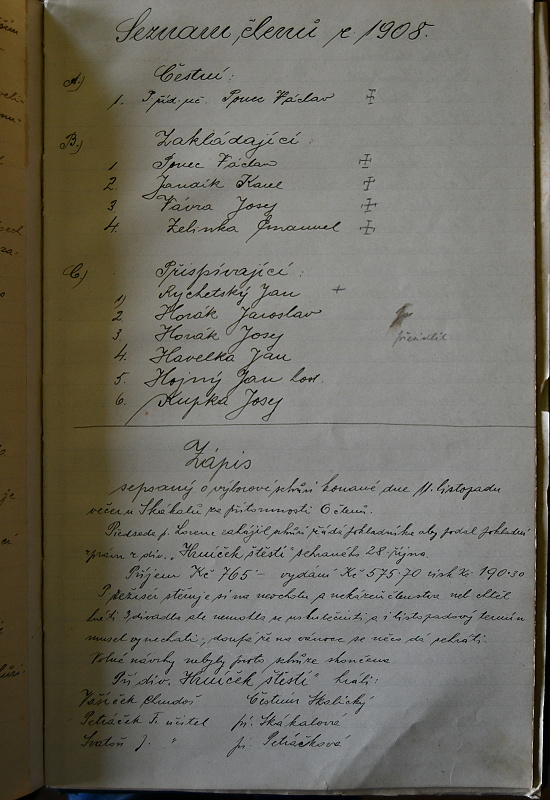 Seznam členů r 1908.
A.) Čestní:
1. Příd. uč. Ponec Václav
B.) Zakládající:
1 Ponec Václav
2. Jandík Karel
3 Vávra Josef
4. Zelinka Emanuel
C.) Přispívající:
1) Rychetský Jan +
2 Horák Jaroslav
3. Horák Josef
4. Havelka Jan
5. Hojný Jan host.
6. Kupka Josef
Zápis
sepsaný o výborové schůzi konané dne 11. listopadu
večer u Skákalů za přítomnosti 6 členů.
Předseda p. Lorenc zahájil schůzi žádá pokladníka aby podal pokladní
zprávu z div. „Hrníček štěstí" sehraného 28. října.
Příjem Kč 765·- vydání Kč 575·70 zisk Kč 190·30
P. režisér stěžuje si na neochotu a nekázeň členstva neb chtěl
hráti 2 divadla ale nemohlo se uskutečniti a i listopadový termín
musel vynechati, doufá že na vánoce se něco dá sehráti.
Volné návrhy nebyly proto schůze skončena
Při div. „Hrníček štěstí" hráli:
Vášíček Chudoš Čestmír Skalický
Petráček F. učitel sl. Skákalová
Svatoň J. " sl. Petráčková